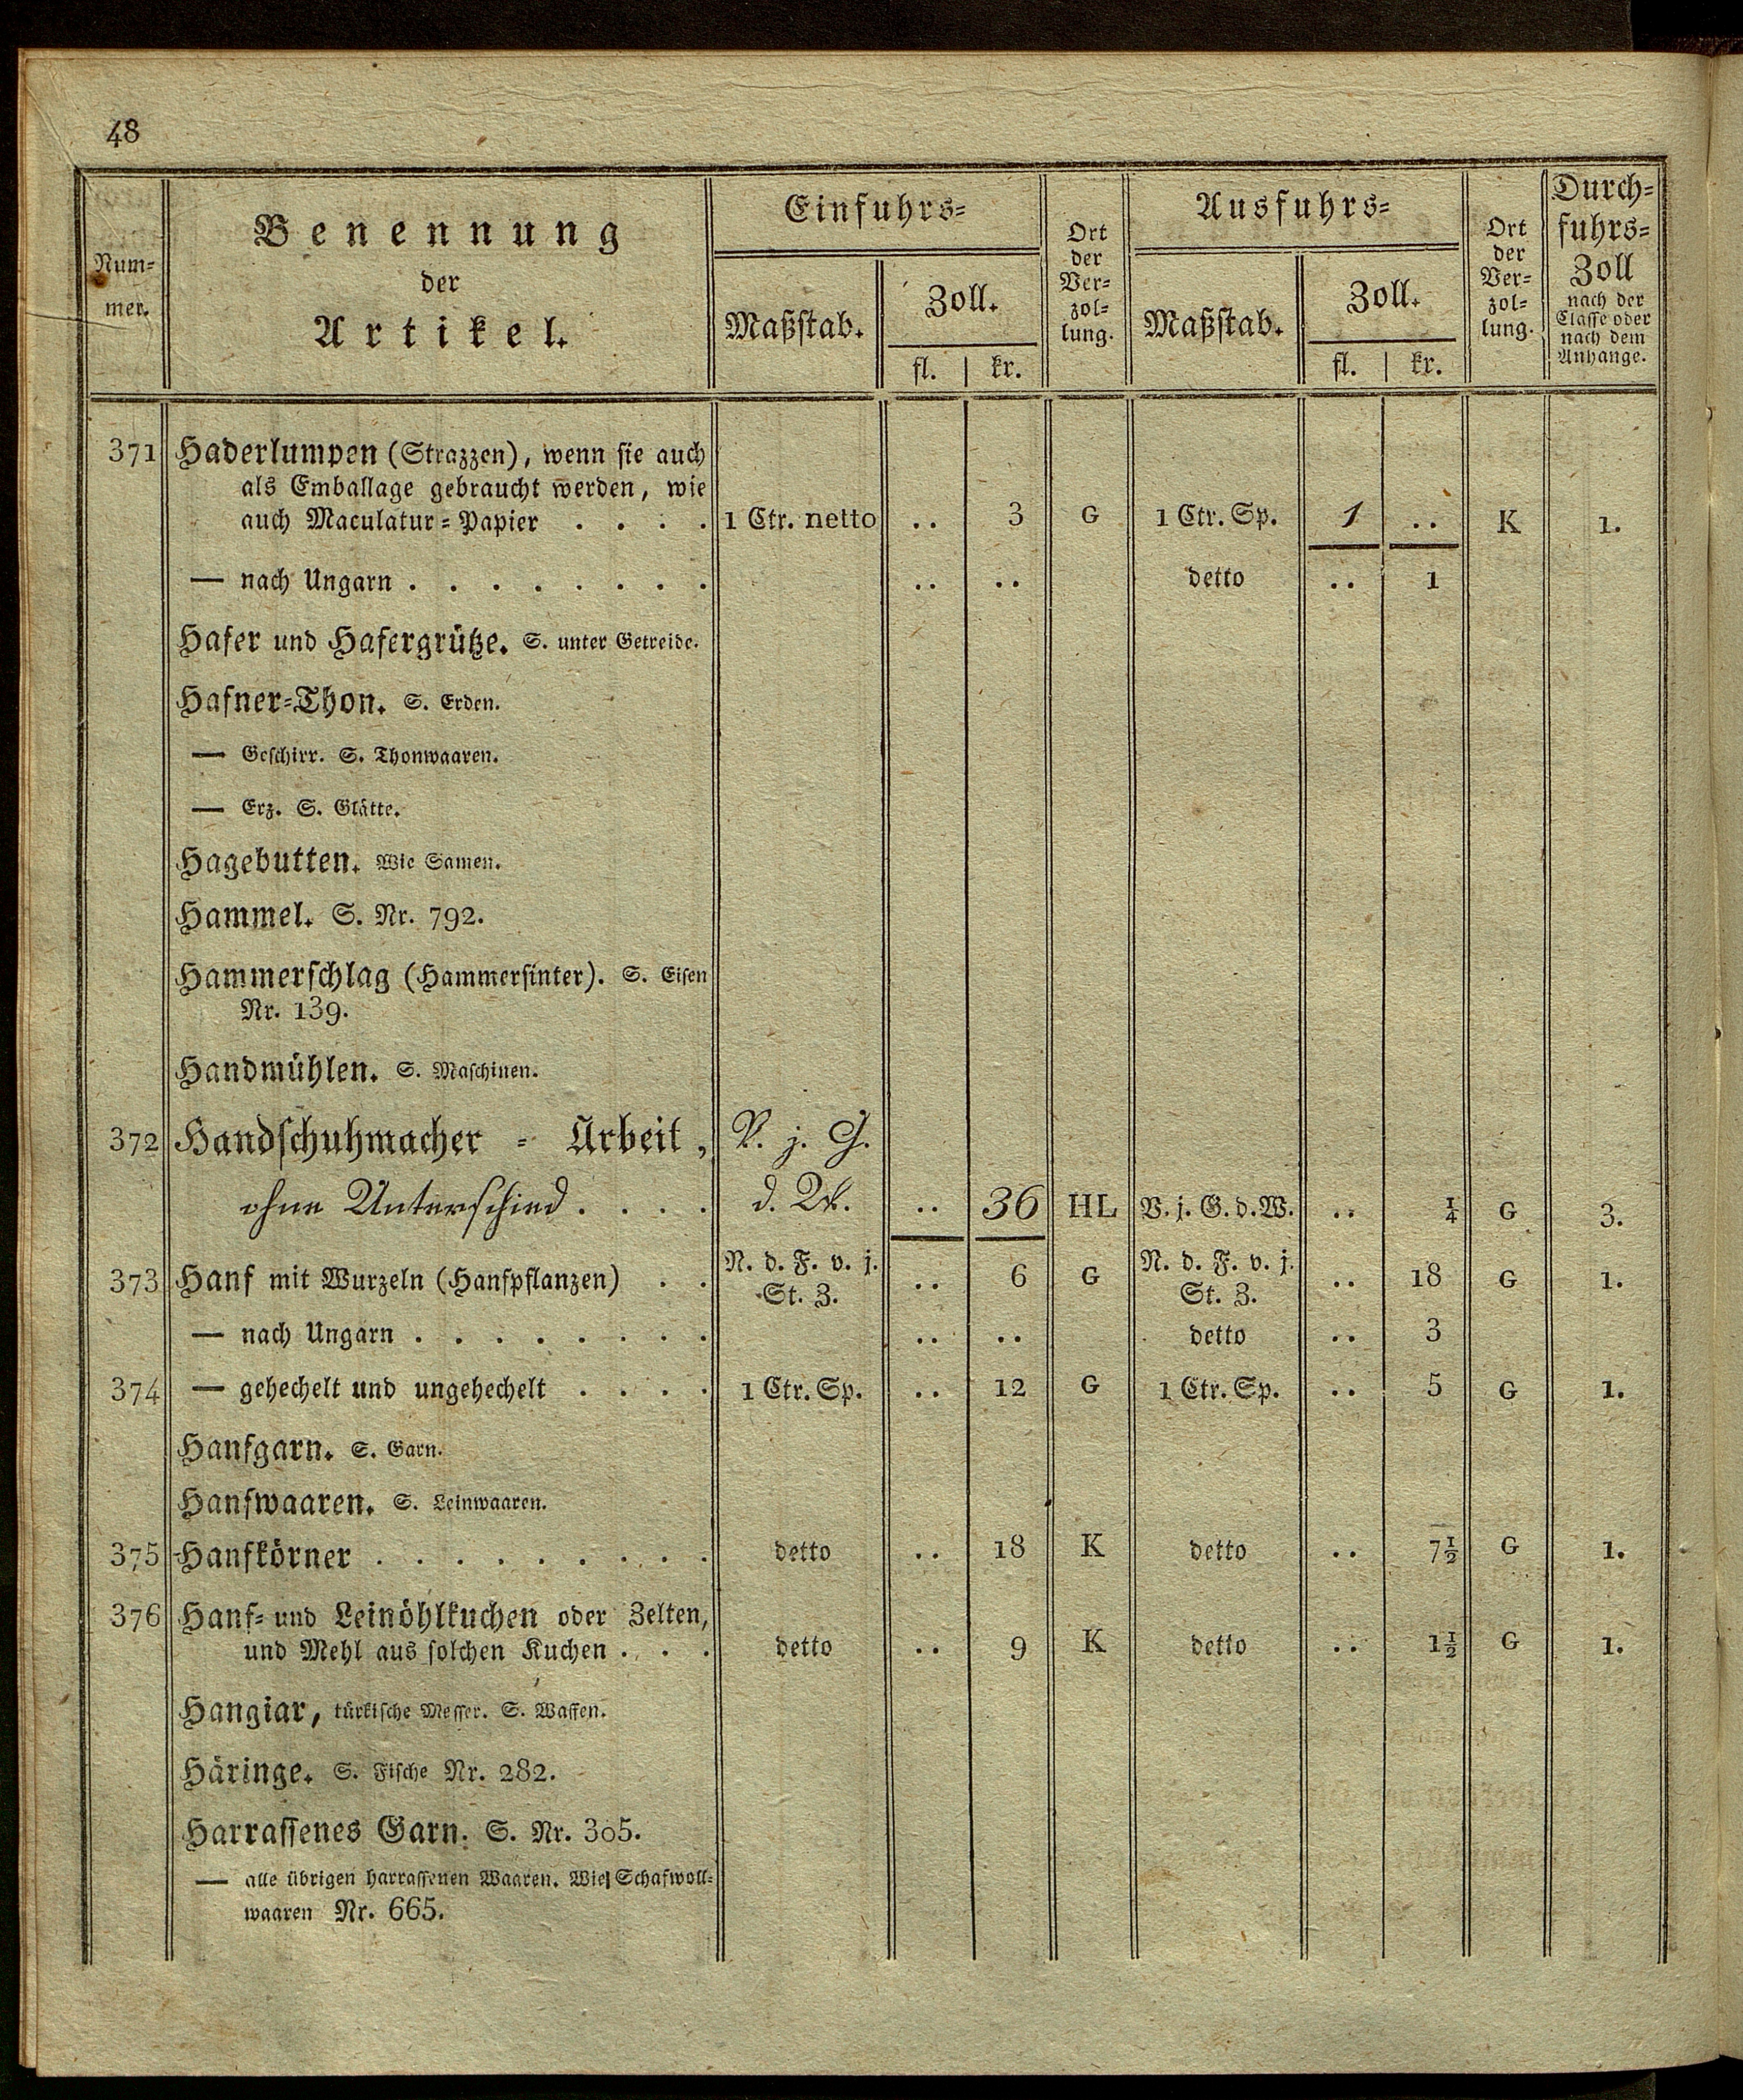 48
Num-
mer.
Benennung
der
Artikel.
Einfuhrs-
Maßstab.
Zoll.
fl. kr.
Ort
der
Ver-
zol-
lung.
Ausfuhrs-
Maßstab.
Zoll.
fl. kr.
Ort
der
Ver-
zol-
lung.
Durch-
fuhrs-
Zoll
nach der
Classe oder
nach dem
Anhange.
371 Haderlumpen (Strazzen), wenn sie auch
als Emballage gebraucht werden, wie
auch Maculatur-Papier . . . . 1 Ctr. netto .. 3 G 1 Ctr. Sp. 1 .. K 1.
— nach Ungarn . . . . . . . . .. .. detto .. 1
Hafer und Hafergrütze. S. unter Getreide.
Hafner-Thon. S. Erden.
— Geschirr. S. Thonwaaren.
— Erz. S. Glätte.
Hagebutten. Wie Samen.
Hammel. S. Nr. 792.
Hammerschlag (Hammersinter). S. Eisen
Nr. 139.
Handmühlen. S. Maschinen.
372 Handschuhmacher - Arbeit, V. j. G.
ohne Unterschied . . . . d. W. .. 36 HL V. j. G. d. W. .. ¼ G 3.
373 Hanf mit Wurzeln (Hanfpflanzen) . . N. d. F. v. j. St. Z. .. 6 G N. d. F. v. j. St. Z. .. 18 G 1.
— nach Ungarn . . . . . . . . .. .. detto .. 3
374 — gehechelt und ungehechelt . . . . 1 Ctr. Sp. .. 12 G 1 Ctr. Sp. .. 5 G 1.
Hanfgarn. S. Garn.
Hanfwaaren. S. Leinwaaren.
375 Hanfkörner . . . . . . . . . detto .. 18 K detto .. 7½ G 1.
376 Hanf- und Leinöhlkuchen oder Zelten,
und Mehl aus solchen Kuchen . . . detto .. 9 K detto .. 1½ G 1.
Hangiar, türkische Messer. S. Waffen.
Häringe. S. Fische Nr. 282.
Harrassenes Garn. S. Nr. 305.
— alle übrigen harrassenen Waaren. Wie Schafwoll-
waaren Nr. 665.